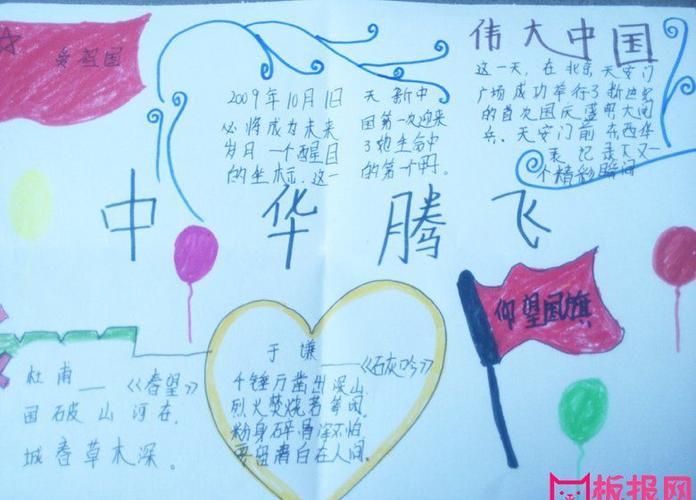 爱祖国
伟大中国
2009年10月1日
必将成为未来
岁月一个醒目
的坐标,这一
天 新中
国第一次迎来
了她生命中
的第一个甲
这一天,在北京天安门
广场成功举行了新世纪
的首次国庆盛明大阅
兵。天安门前东西华
表记录下又一
个精彩瞬间
中华腾飞
仰望国旗
杜甫——《春望》
国破山河在,
城春草木深。
于谦——《石灰吟》
千锤万凿出深山
烈火焚烧若等闲,
粉身碎骨浑不怕
要留清白在人间。
板报网